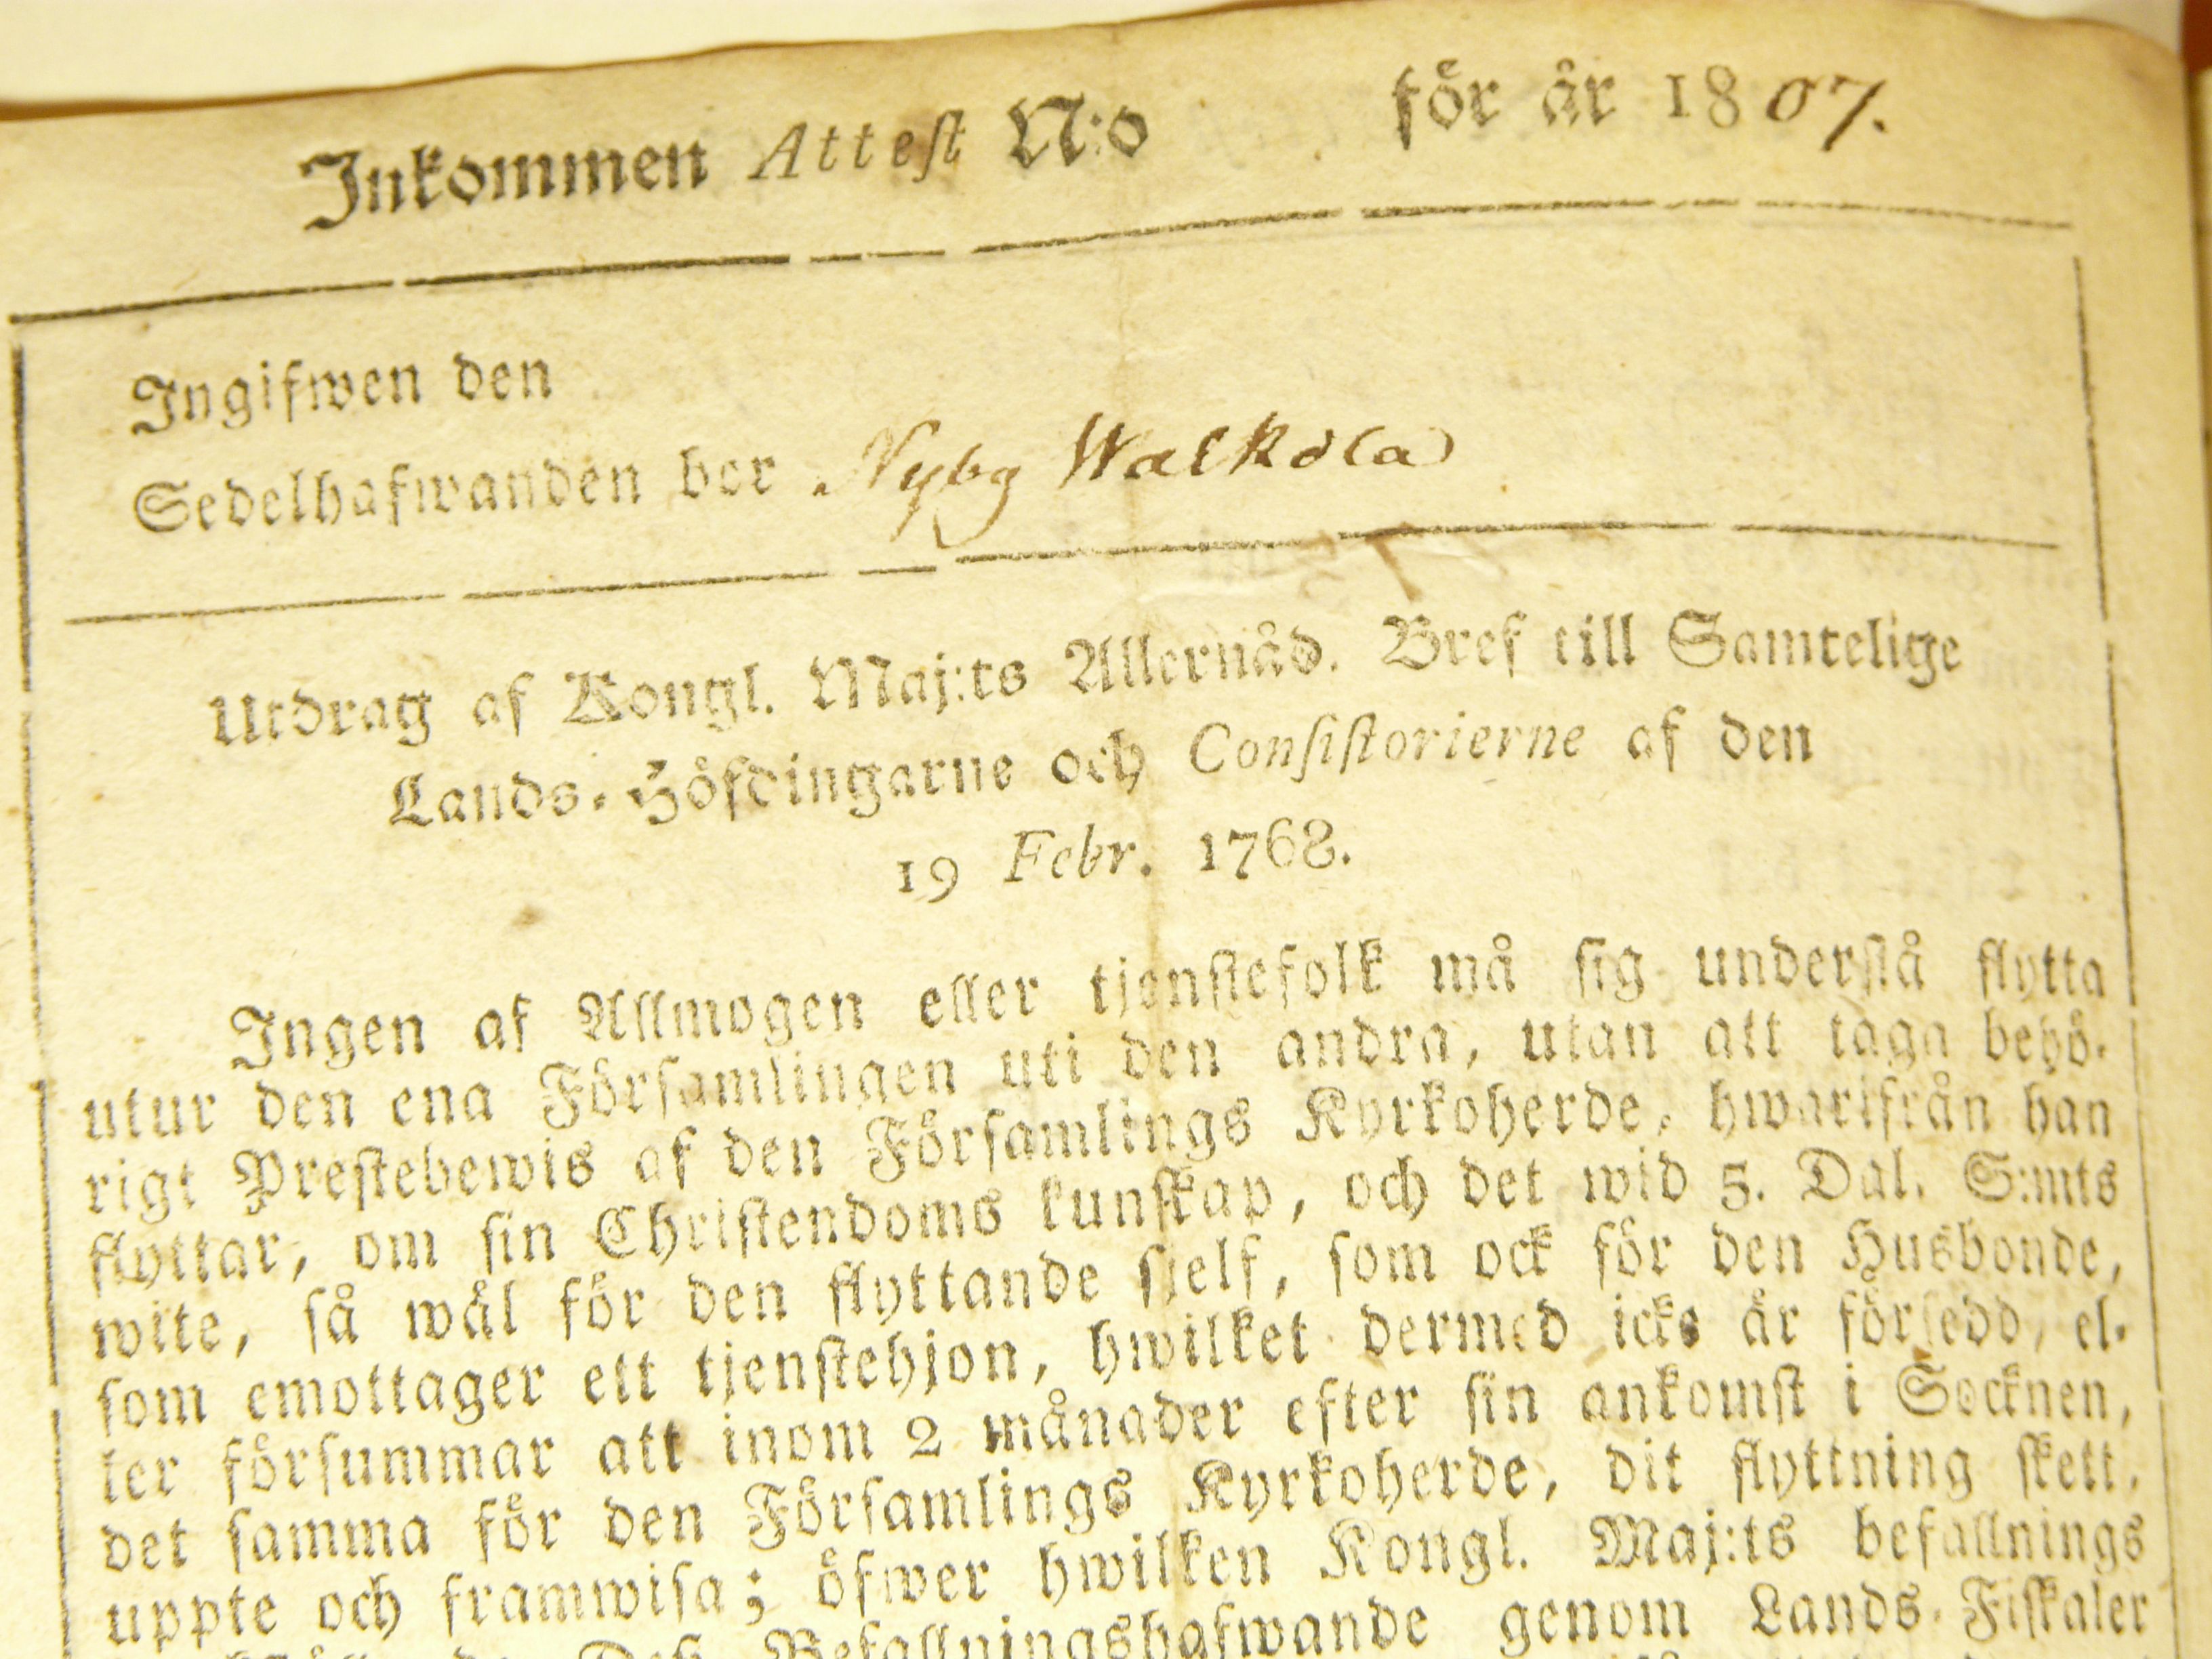 Inkommen Attest N:o för år 1807.
Ingifwen den
Sedelhafwanden bor Nybg Walkola
Utdrag af Kongl. Maj:ts Allernåd. Bref till Samtelige
Lands-Höfdingarne och Consistorierne af den
19 Febr. 1768.
Ingen af Allmogen eller tjenstefolk må sig understå flytta
utur den ena Församlingen uti den andra, utan att taga behö-
rigt Prestebewis af den Församlings Kyrkoherde, hwarifrån han
flyttar, om sin Christendoms kunskap, och det wid 5. Dal. S:mts
wite, så wäl för den flyttande sjelf, som ock för den Husbonde,
som emottager ett tjenstehjon, hwilket dermed icke är försedd, el-
ler försummar att inom 2 månader efter sin ankomst i Socknen,
det samma för den Församlings Kyrkoherde, dit flyttning skett,
uppte och framwisa; öfwer hwilken Kongl. Maj:ts befallnings
Befallningshafwande genom Lands-Fiskaler